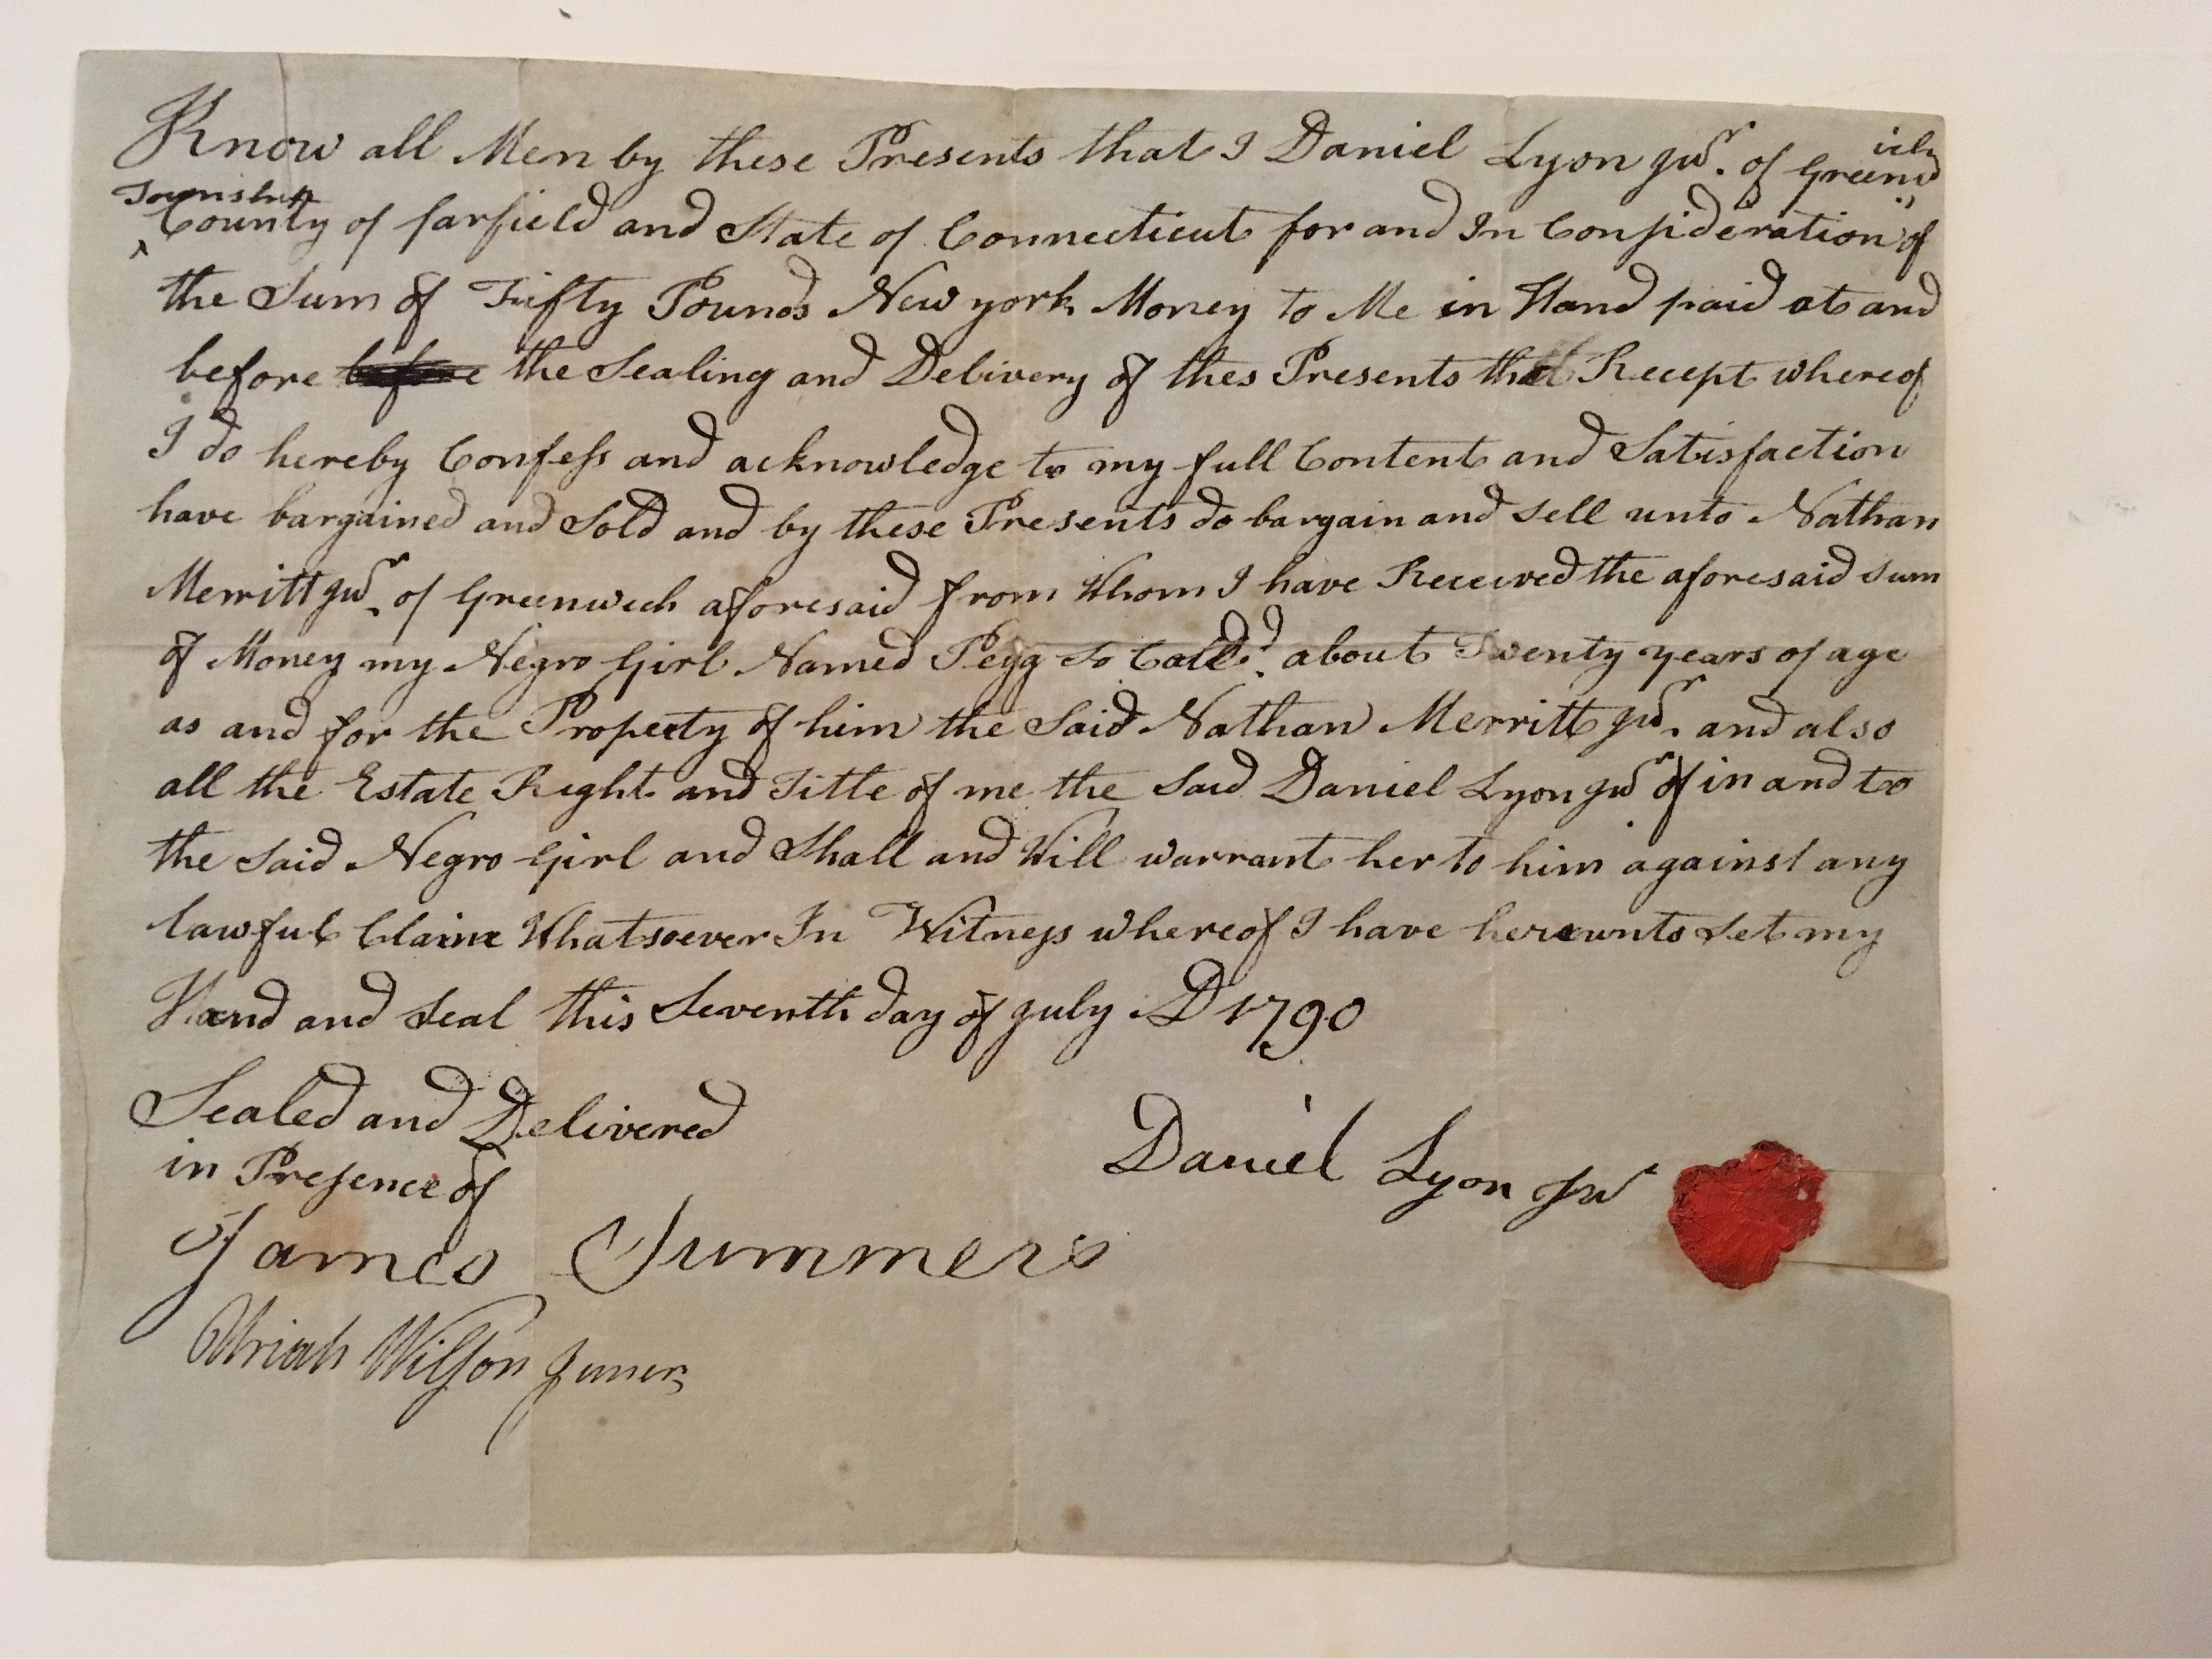 Know all Men by these Presents that I Daniel Lyon Jur. of Greenwich
Township County of farfield and State of Connecticut for and In Consideration of
the Sum of Fifty Pounds New york Money to Me in Hand paid at and
before before the Sealing and Delivery of thes Presents the Recept whereof
I do hereby Confess and acknowledge to my full Content and Satisfaction
have bargained and Sold and by these Presents do bargain and sell unto Nathan
Merritt Jur. of Greenwich aforesaid from Whom I have Received the aforesaid sum
of Money my Negro Girl Named Pegg So Calld. about Twenty years of age
as and for the Property of him the Said Nathan Merritt Jur. and also
all the Estate Right and Title of me the Said Daniel Lyon Jur of in and too
the Said Negro Girl and Shall and Will warrant her to him against any
lawful Claime Whatsoever In Witness whereof I have hereunto Set my
Hand and Seal this Seventh day of July AD 1790
Sealed and Delivered
in Presence of
Daniel Lyon Jur
James Summers
Uriah Wilson Juner